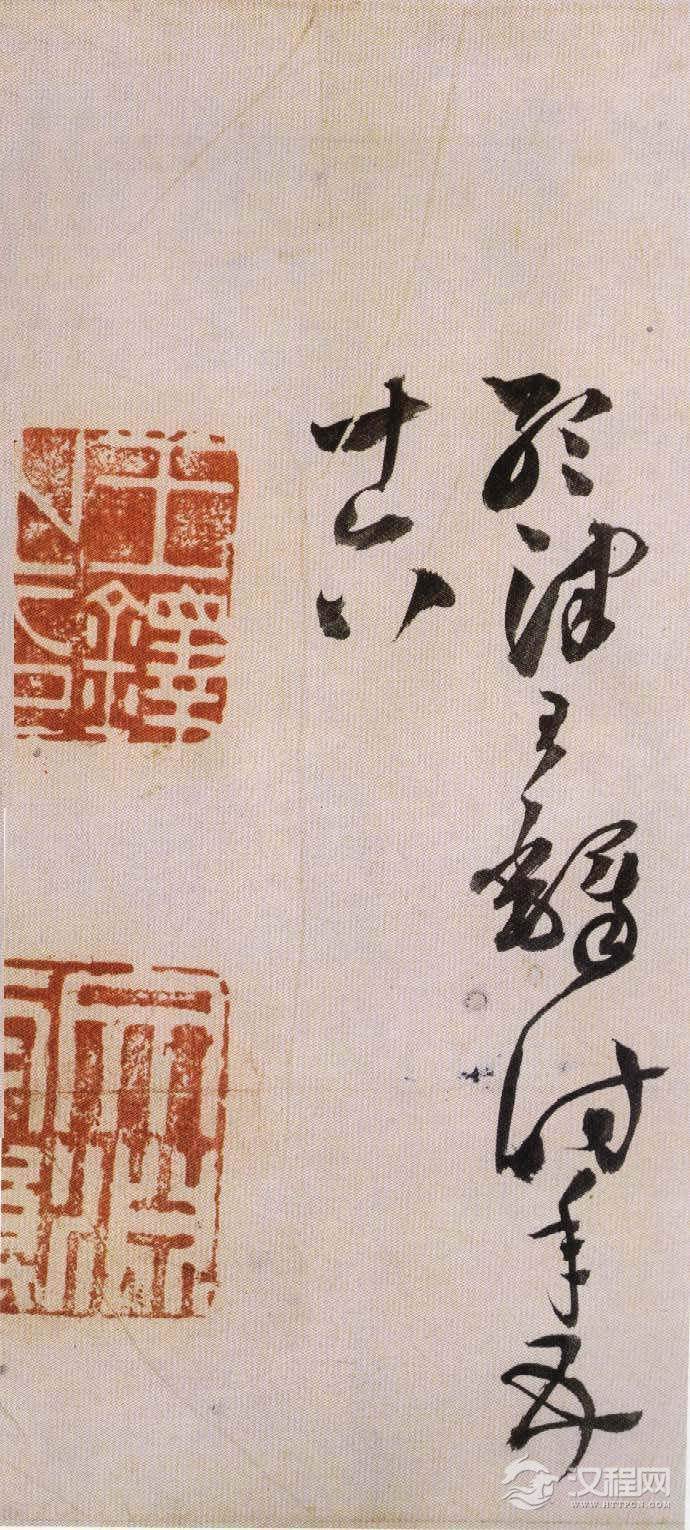 津王鐸時年五
十六
王鐸之印
汉程网
WWW.HTTPCN.COM